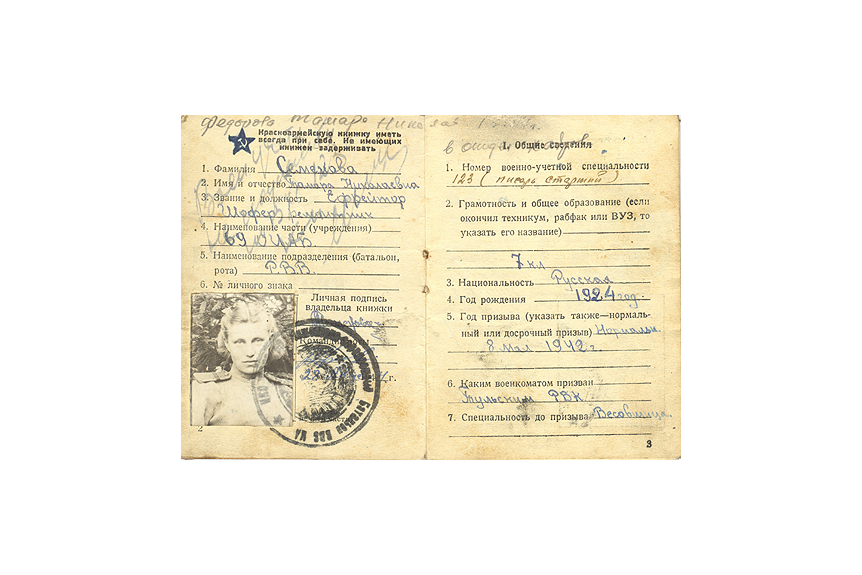 Федорова Тамара
Красноармейскую книжку иметь
всегда при себе. Не имеющих
книжек задерживать
1. Фамилия Семенова
2. Имя и отчество Тамара Николаевна
3. Звание и должность Ефрейтор
Шофер
4. Наименование части (учреждения)
69
5. Наименование подразделения (батальон,
рота) РВВ.
6. № личного знака
Личная подпись
владельца книжки
2
I. Общие сведения
1. Номер военно-учетной специальности
123 (писарь старший)
2. Грамотность и общее образование (если
окончил техникум, рабфак или ВУЗ, то
указать его название)
7 кл
3. Национальность Русская
4. Год рождения 1924 год.
5. Год призыва (указать также—нормаль-
ный или досрочный призыв) Нормальн.
8 мая 1942 г.
6. Каким военкоматом призван
Тульским РВК
7. Специальность до призыва Весовщица
3